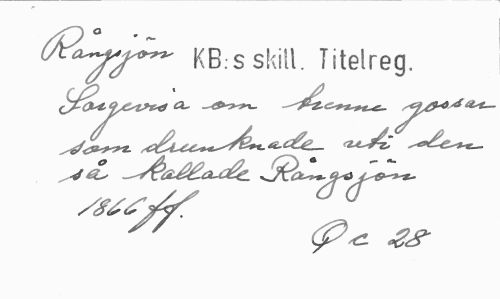 Rångsjön KB:s skill. Titelreg.
Sorgevisa om trenne gossar
som drunknade uti den
så kallade Rångsjön
1866 ff.
Q c 28